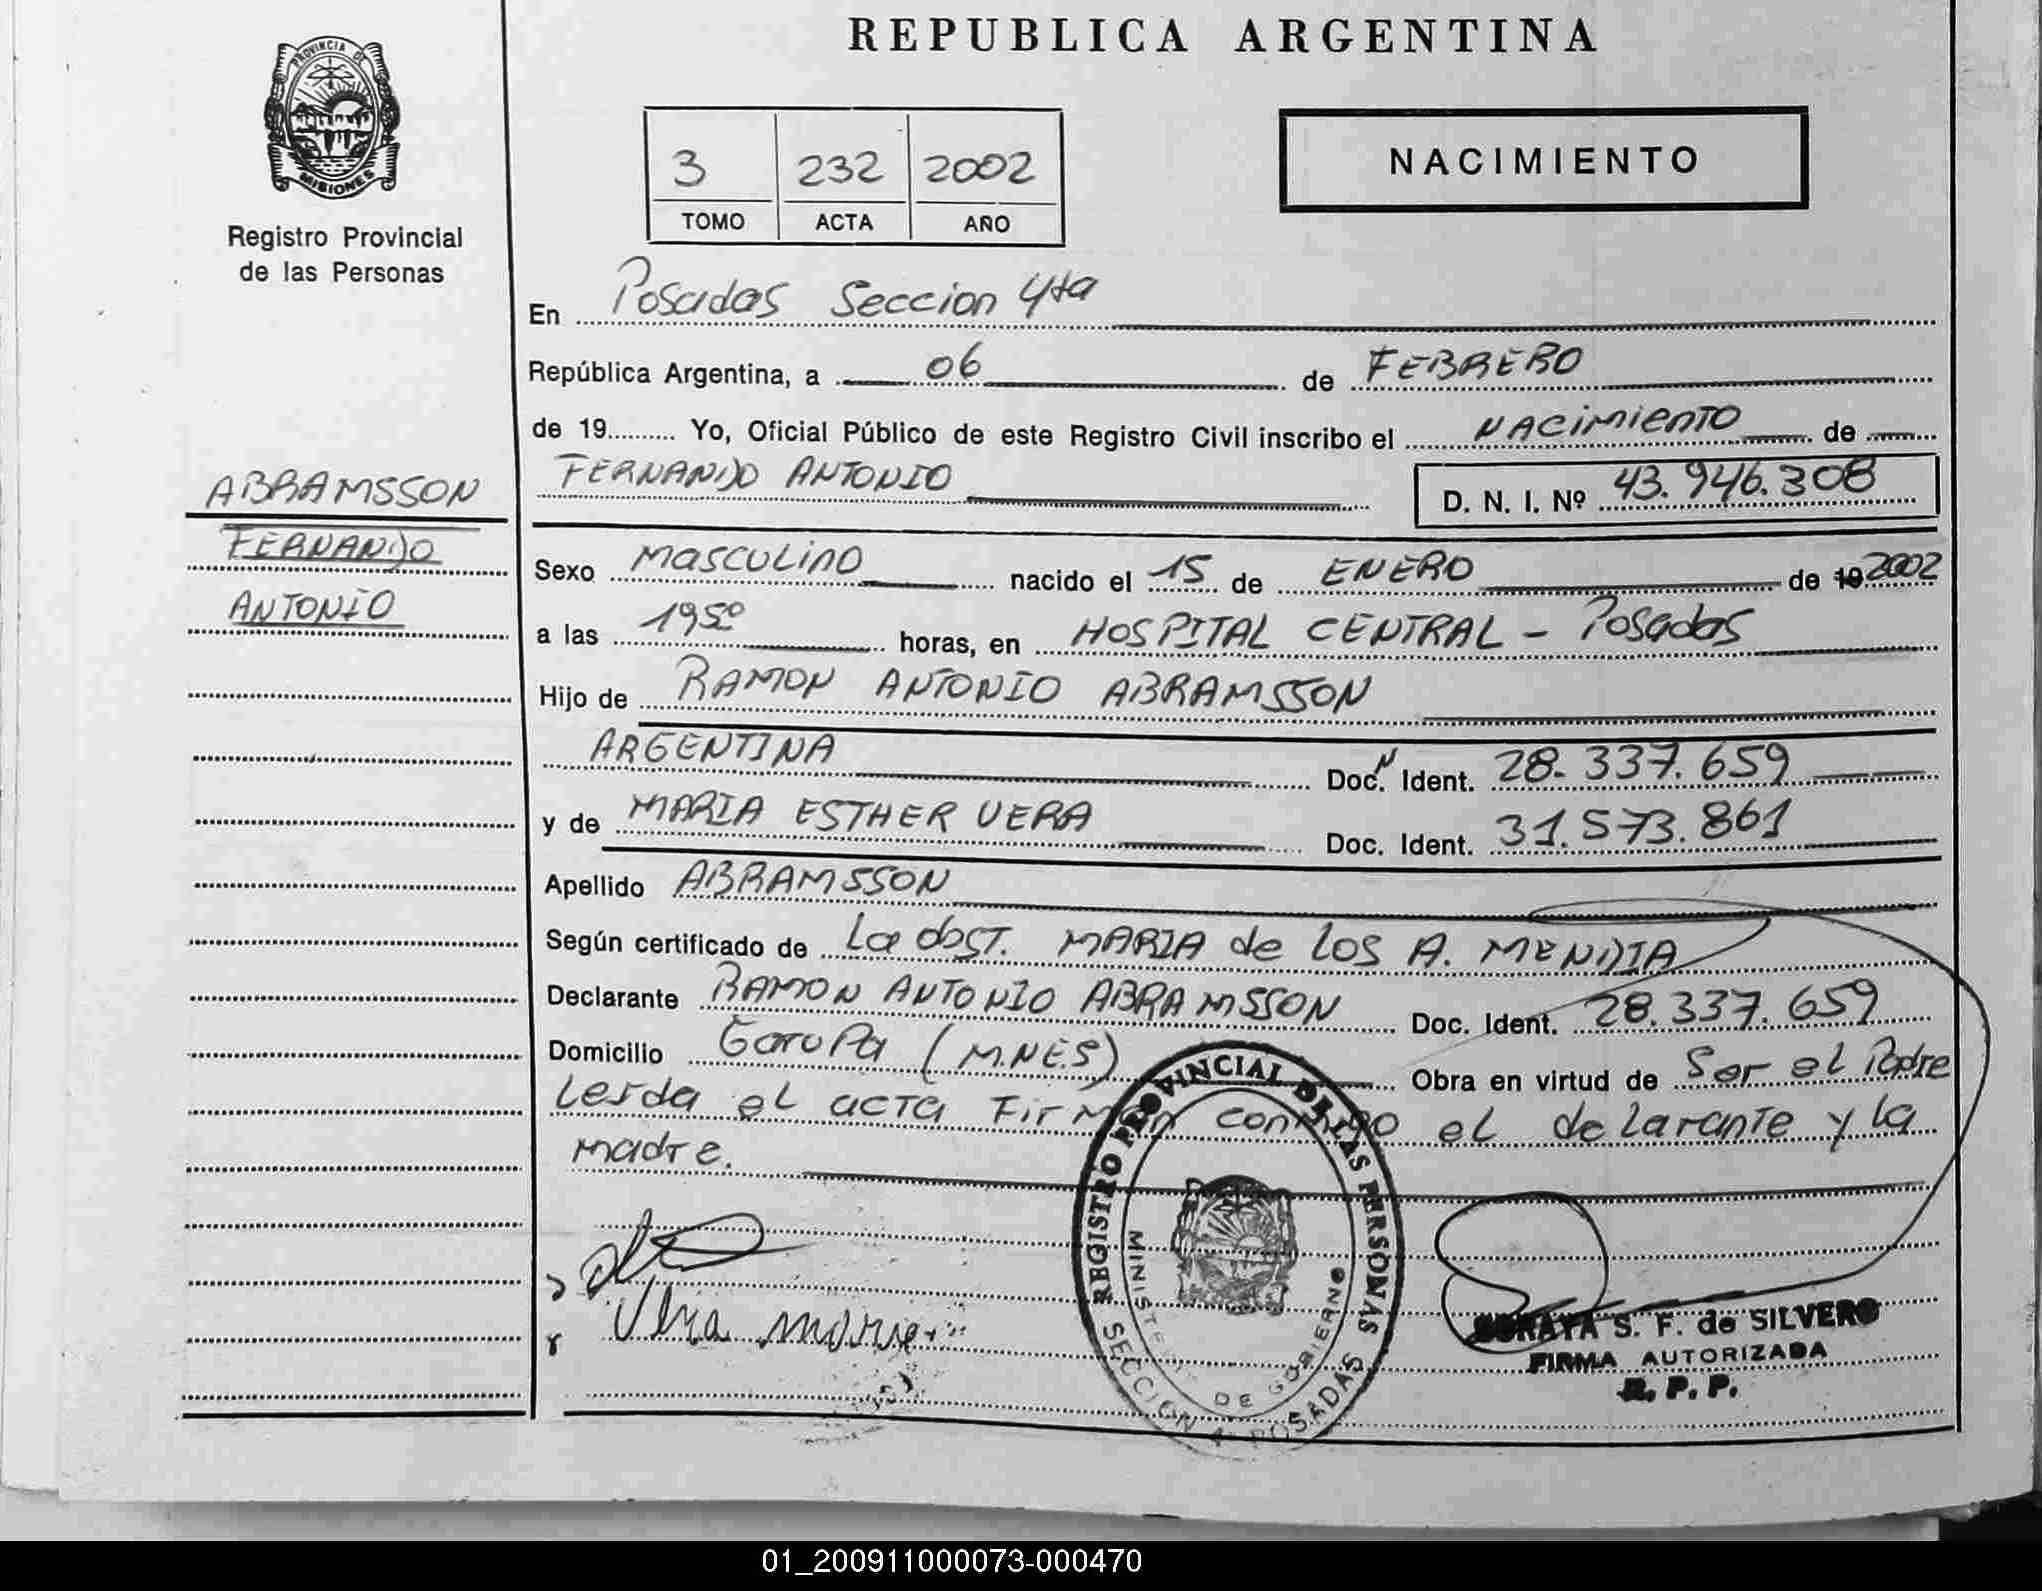 REPUBLICA ARGENTINA
PROVINCIA DE
MISIONES
Registro Provincial
de las Personas
3 232 2002
TOMO ACTA AÑO
NACIMIENTO
En Posadas Seccion 4ta
República Argentina, a 06 de FEBRERO
de 19 Yo, Oficial Público de este Registro Civil inscribo el NACIMIENTO de
FERNANDO ANTONIO D. N. I. Nº 43.946.308
ABRAMSSON
FERNANDO
ANTONIO
Sexo MASCULINO nacido el 15 de ENERO de 19 2002
a las 1950 horas, en HOSPITAL CENTRAL - Posadas
Hijo de RAMON ANTONIO ABRAMSSON
ARGENTINA Doc. Ident. 28.337.659
y de MARIA ESTHER VERA Doc. Ident. 31.573.861
Apellido ABRAMSSON
Según certificado de La obst. MARIA de LOS A. MENDIA
Declarante RAMON ANTONIO ABRAMSSON Doc. Ident. 28.337.659
Domicilio Garupa (M.NES) Obra en virtud de Ser el Padre
Leida el acta Firman conmigo el delarante y la
madre.
Vera
REGISTRO PROVINCIAL DE LAS PERSONAS
MINISTERIO DE GOBIERNO
SECCION 4 POSADAS
SORAYA S. F. de SILVERO
FIRMA AUTORIZADA
R. P. P.
01_200911000073-000470